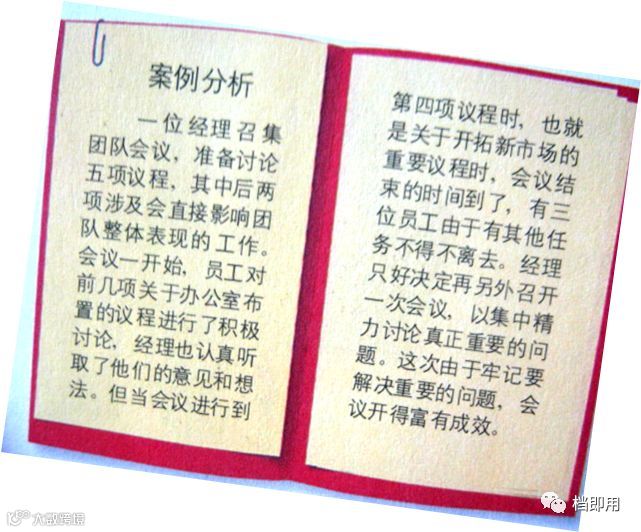 案例分析
一位经理召集
团队会议，准备讨论
五项议程，其中后两
项涉及会直接影响团
队整体表现的工作。
会议一开始，员工对
前几项关于办公室布
置的议程进行了积极
讨论，经理也认真听
取了他们的意见和想
法。但当会议进行到
第四项议程时，也就
是关于开拓新市场的
重要议程时，会议结
束的时间到了，有三
位员工由于有其他任
务不得不离去。经理
只好决定再另外召开
一次会议，以集中精
力讨论真正重要的问
题。这次由于牢记要
解决重要的问题，会
议开得富有成效。
大数跨境
档即用